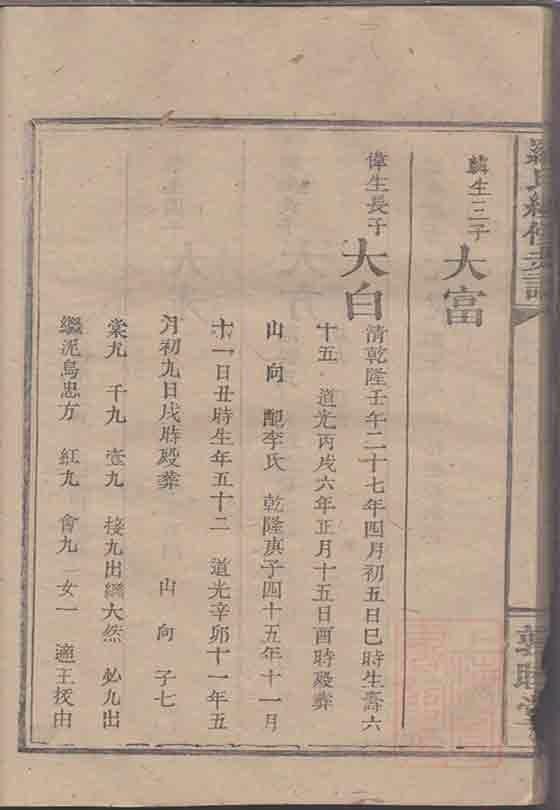 羅氏續修支譜
敦睦堂
韓生三子 大富
偉生長子 大白 清乾隆壬午二十七年四月初五日巳時生壽六
十五 道光丙戌六年正月十五日酉時歿葬
山向 配李氏 乾隆庚子四十五年十一月
十一日丑時生年五十二 道光辛卯十一年五
月初九日戌時歿葬 山向 子七
棠九 千九 壺九 接九出繼大然 必九出
繼泥鳥忠方 紅九 會九 女一 適王援由